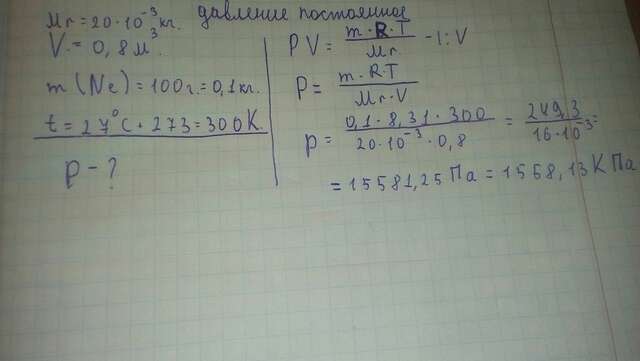 давление постоянное
Mr = 20·10⁻³ кг.
V = 0,8 м³
m (Ne) = 100 г. = 0,1 кг.
t = 27°C + 273 = 300 K.
P - ?
PV = m·R·T / Mr -1:V
P = m·R·T / Mr·V
P = 0,1·8,31·300 / 20·10⁻³·0,8 = 249,3 / 16·10⁻³ =
= 15581,25 Па = 1558,13 К Па